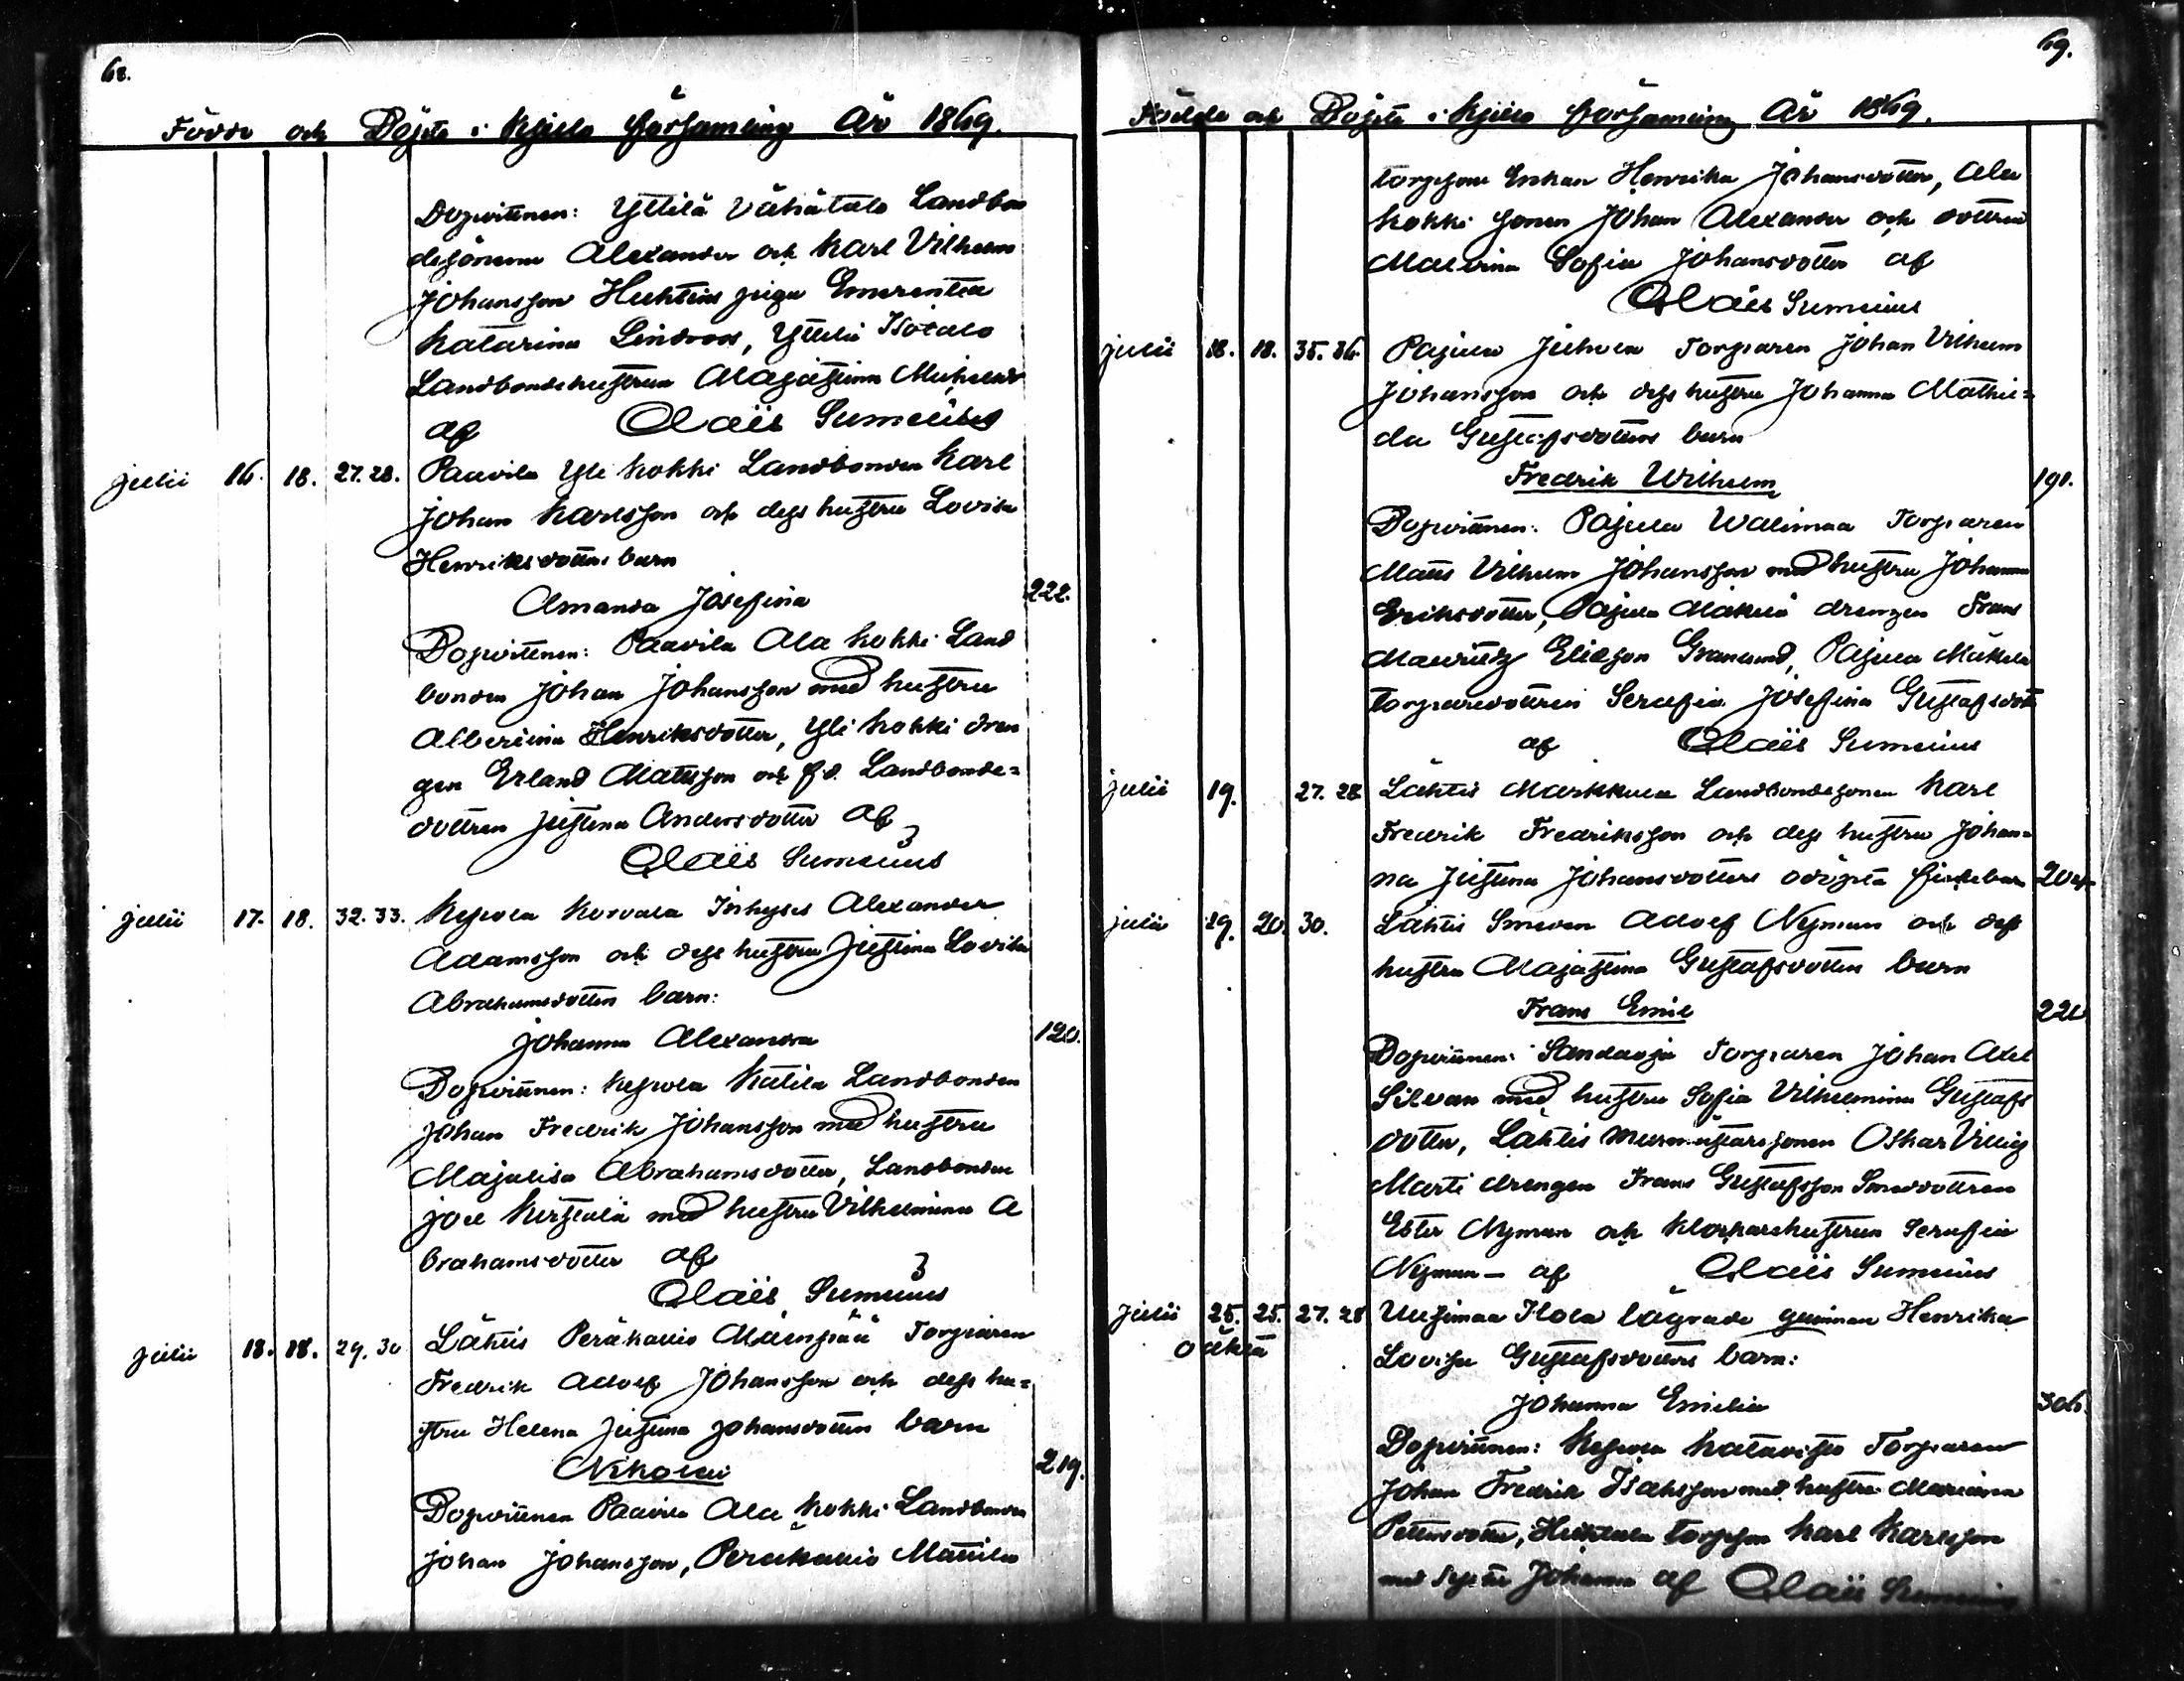 68.
Födde och Döpte i Kjulo församling År 1869.
Dopvittnen: Yttilä Vähätalo Landbon
desönerne Alexander och Karl Vilhelm
Johansson Huhtins piga Emerentia
Katarina Lindroos, Yttilä Isotalo
Landbondehustrun Majastina Michelsd
af Claës Sumelius
Julii 16. 18. 27. 28. Paavila Yli Kokki Landbonden Karl
Johan Karlsson och dess hustru Lovisa
Henriksdotters barn
Amanda Josefina 222.
Dopvittnen: Paavila Ala Kokki Land
bonden Johan Johansson med hustru
Albertina Henriksdotter, Yli Kokki dren
gen Erland Matsson och f.d. Landbonde=
dottren Justina Andersdotter af
Claës Sumelius
Julii 17. 18. 32. 33. Kepola Korvala Inhyses Alexander
Adamsson och dess hustru Justina Lovisa
Abrahamsdotters barn:
Johanna Alexandra 120.
Dopvittnen: Kepola Katila Landbonden
Johan Fredrik Johansson med hustru
Majalisa Abrahamsdotter, Landbonden
Joel Kerstola med hustru Vilhelmina A
brahamsdotter af
Claës Sumelius
Julii 18. 18. 29. 30 Lähtis Peräkallio Mäenpää Torparen
Fredrik Adolf Johansson och dess hu=
stru Helena Justina Johansdotters barn
Nikolai 219.
Dopvittnen Paavila Ala Kokki Landbonden
Johan Johansson, Peräkallio Mattila
69.
Födde och Döpte i Kjulo församling År 1869.
torpsons Enkan Henrika Johansdotter, Ala
Kokki sonen Johan Alexander och dottren
Malvina Sofia Johansdotter af
Claës Sumelius
Julii 18. 18. 35. 36. Pajula Juhola Torparen Johan Vilhelm
Johansson och dess hustru Johanna Mathil=
da Gustafsdotters barn
Fredrik Wilhelm 191.
Dopvittnen: Pajula Walimaa Torparen
Matts Vilhelm Johansson med hustru Johanna
Eriksdotter, Pajula Mäkelä drengen Frans
Mauritz Eliasson Granlund, Pajula Mäkelä
torparedottren Serafia Josefina Gustafsdott
af Claës Sumelius
Julii 19. 27. 28. Lähtis Markkula Landbondesonen Karl
Fredrik Fredriksson och dess hustru Johan=
na Justina Johansdotters odöpta flickebarn 204
Julii 19. 20. 30. Lähtis Smeden Adolf Nyman och dess
hustru Majastina Gustafsdotters barn
Frans Emil 221
Dopvittnen: Sandaoja Torparen Johan Axel
Silvan med hustru Sofia Vilhelmina Gustafs
dotter, Lähtis Murmästaresonen Oskar Villig
Marti drengen Frans Gustafsson Smeddottren
Ester Nyman och Klockarehustrun Serafia
Nyman – af Claës Sumelius
Julii 25. 25. 27. 28 Uusimaa Ilola lägrade qvinnan Henrika
oäkta Lovisa Gustafsdotters barn:
Johanna Emilia 306.
Dopvittnen: Kepola Katavisto Torparen
Johan Fredrik Isaksson med hustru Mariana
Pettersdotter, Huhtala torpson Karl Karlsson
med Johanna af Claës Sumelius